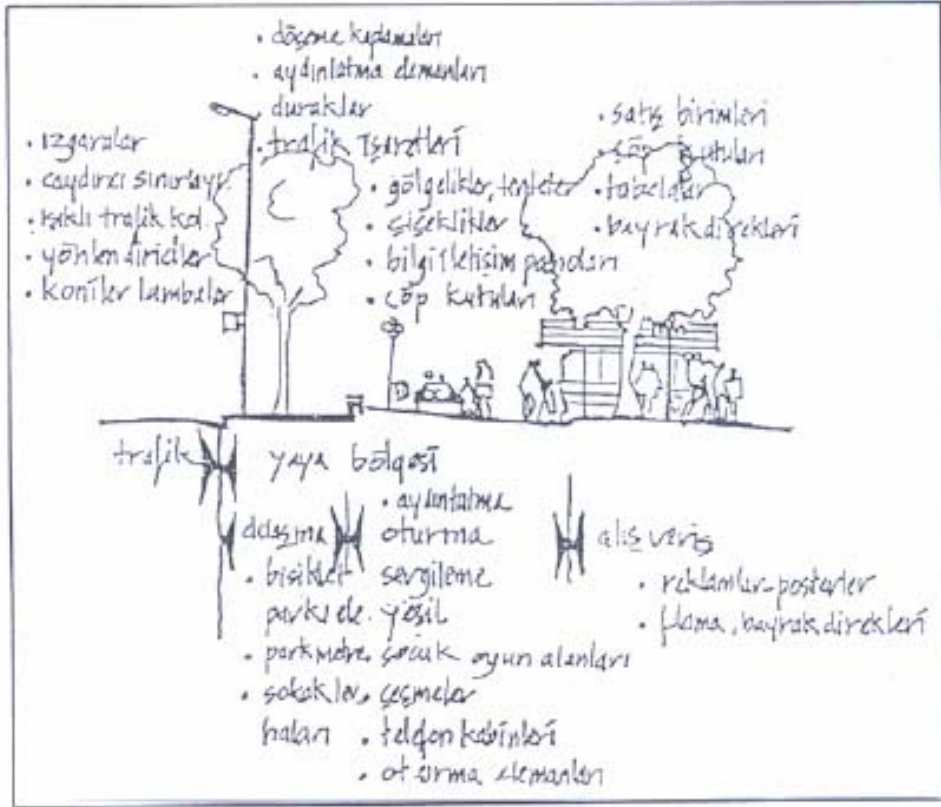 • döşeme kaplamaları
• aydınlatma elemanları
• duraklar
• trafik işaretleri
• ızgaralar
• caydırıcı sınırlayı.
• ışıklı trafik kol.
• yönlendiriciler
• koniler lambalar
• gölgelikler, tenteler
• çiçeklikler
• bilgi iletişim panoları
• çöp kutuları
• satış birimleri
• çöp kutuları
• tabelalar
• bayrak direkleri
trafik
yaya bölgesi
dolaşma
• bisiklet
park ele.
• parkmetre
• sokakler
haları
• aydınlatma
oturma
sergileme
yeşil
çocuk oyun alanları
• çeşmeler
• telefon kabinleri
• oturma elemanları
alış veriş
• reklamlar-posterler
• flama, bayrak direkleri